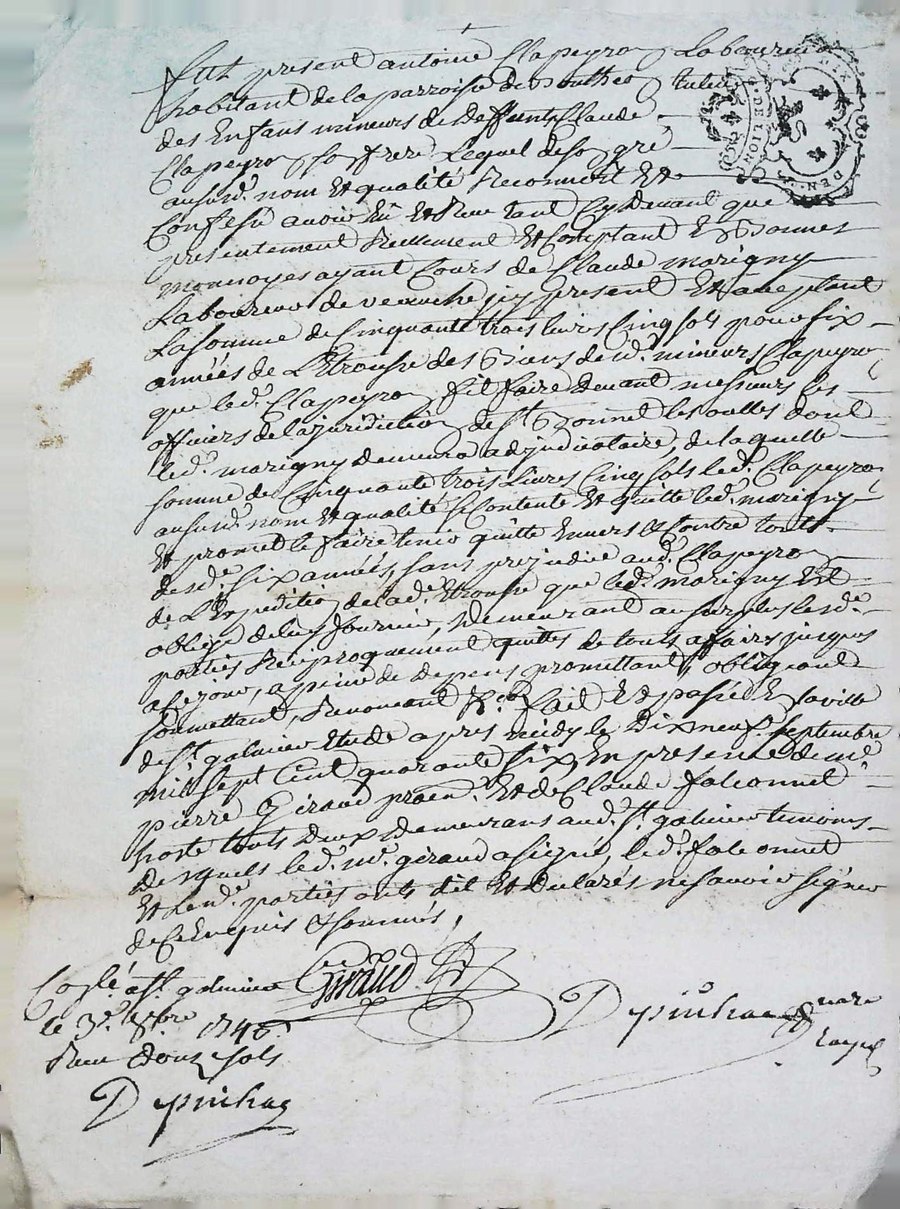 Fut present antoine Clapeyron Laboureur
habitant de la parroisse de tuteur
des Enfans mineurs de deffunt Claude
Clapeyron son frere Lequel de son gré
ausurd. nom Et qualité Reconnoit Et
Confesse avoir Eü Et Reçu tant Cy devant que
presentement Reellement Et Comptant En Bonnes
monnoyes ayant Cours de Claude marigny
Laboureur de veauche icy present Et acceptant
La somme de Cinquante trois livres Cinq sols pour six
années de L'Etrousse des Biens desd. mineurs Clapeyron
que led. Clapeyron fit faire devant messieurs les
officiers de la juridiction de St Bonnet les oulles dont
led. marigny demeura adjudicataire, de laquelle
somme de Cinquante trois Livres Cinq sols led. Clapeyron
ausurd. nom Et qualité se Contente Et quitte led. marigny
Et promet le faire tenir quitte Envers Et Contre touts
desd. six années, sans prejudice aud. Clapeyron
de L'Expedition de lad. Etrousse que led. marigny Est
obligé de luy fournir, demeurant au surplus lesd.
parties Reciproquement quittes de touts affaires jusques
a ce jour, a peine de depens promettant, obligeant
soumettant, Renonceant &c. fait Et passé En la ville
de St galmier Etude apres midy le Dixneuf septembre
mil sept Cent quarante six En presence de me.
pierre Giraud procr. Et de Claude falconnet
hoste touts Deux Demeurans aud. St galmier temoins
desquels led. me. giraud a signé, led. falconnet
Et lesd. parties onts dit Et declarés ne savoir signer
de Ce Enquis Et sommés,
Giraud
Conlé. a St galmier
le 3e. 8bre 1746
Reçu douze sols
Depinhac
Depinhac nore
royal